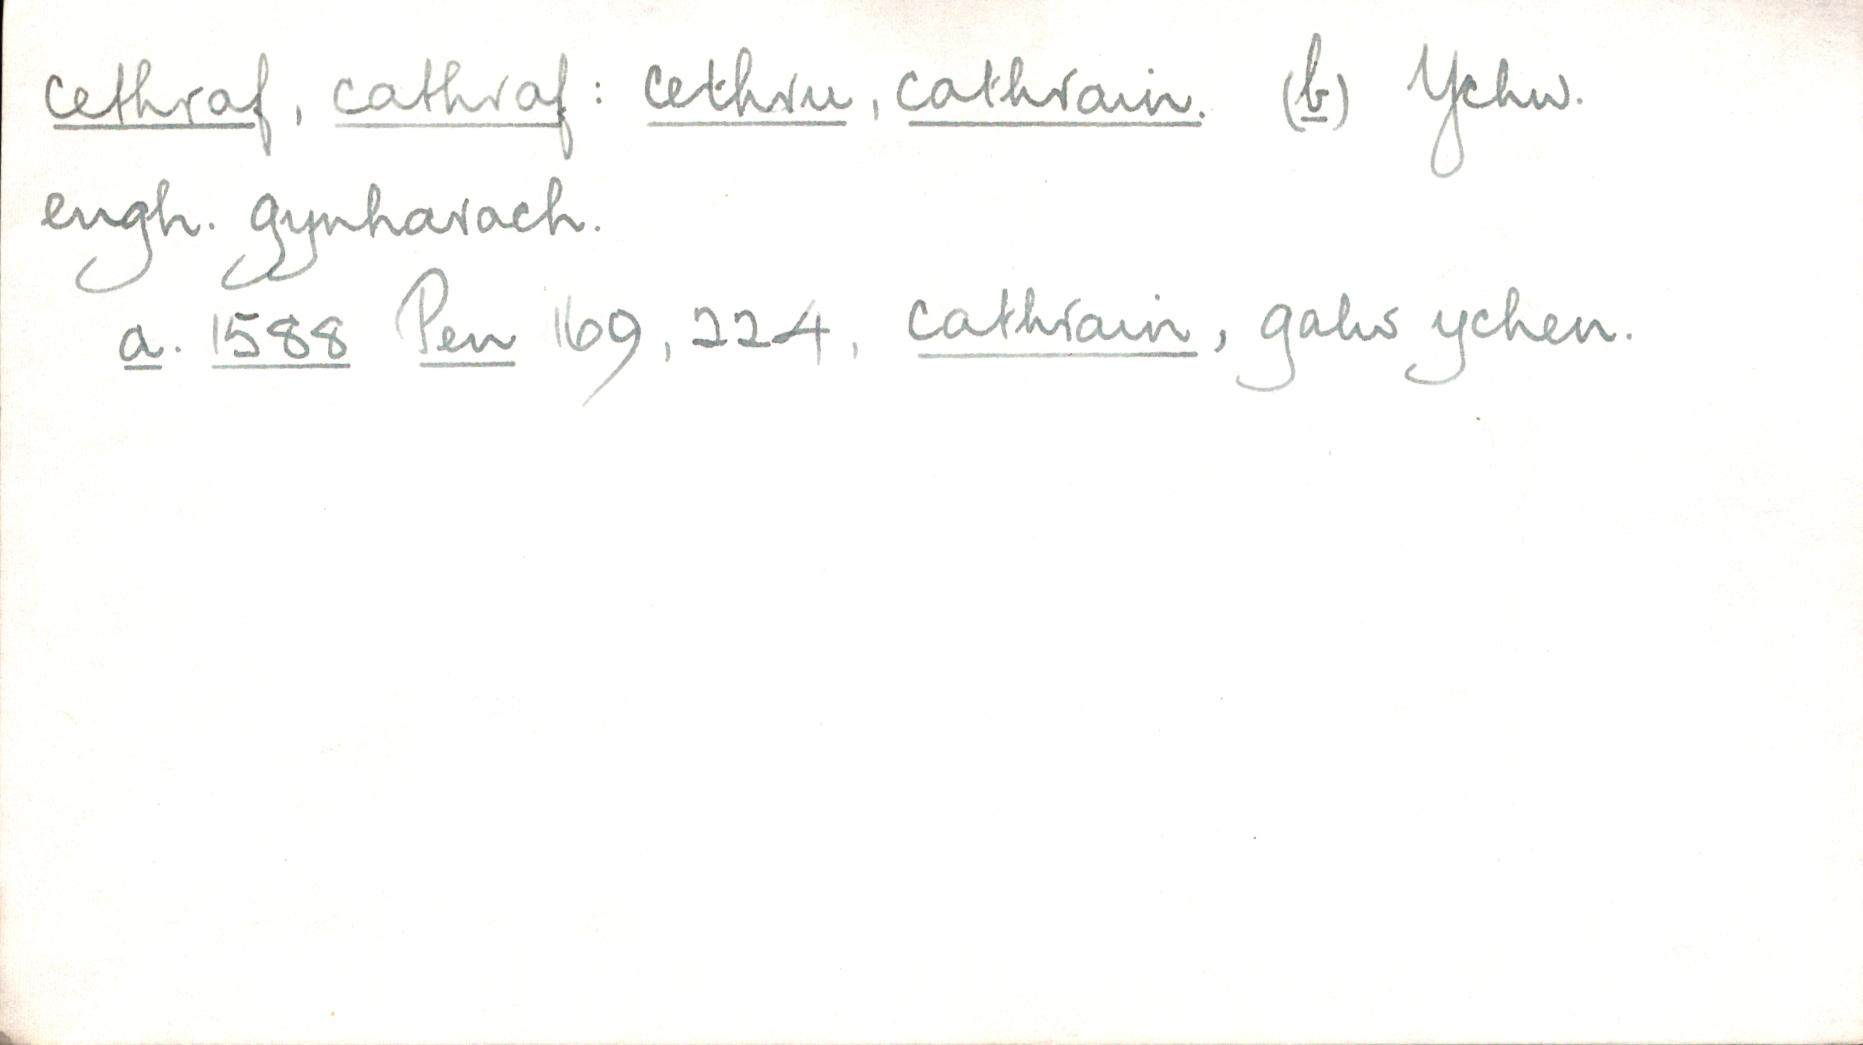 cethraf, cathraf: cethru, cathrain. (b) Ychw.
engh. gynharach.
a. 1588 Pen 169, 224, cathrain, galw ychen.